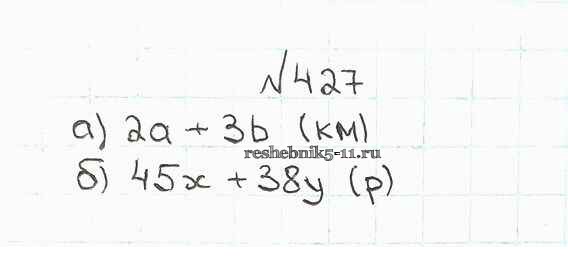 №427
а) 2a + 3b (км)
reshebnik5-11.ru
б) 45x + 38y (р)